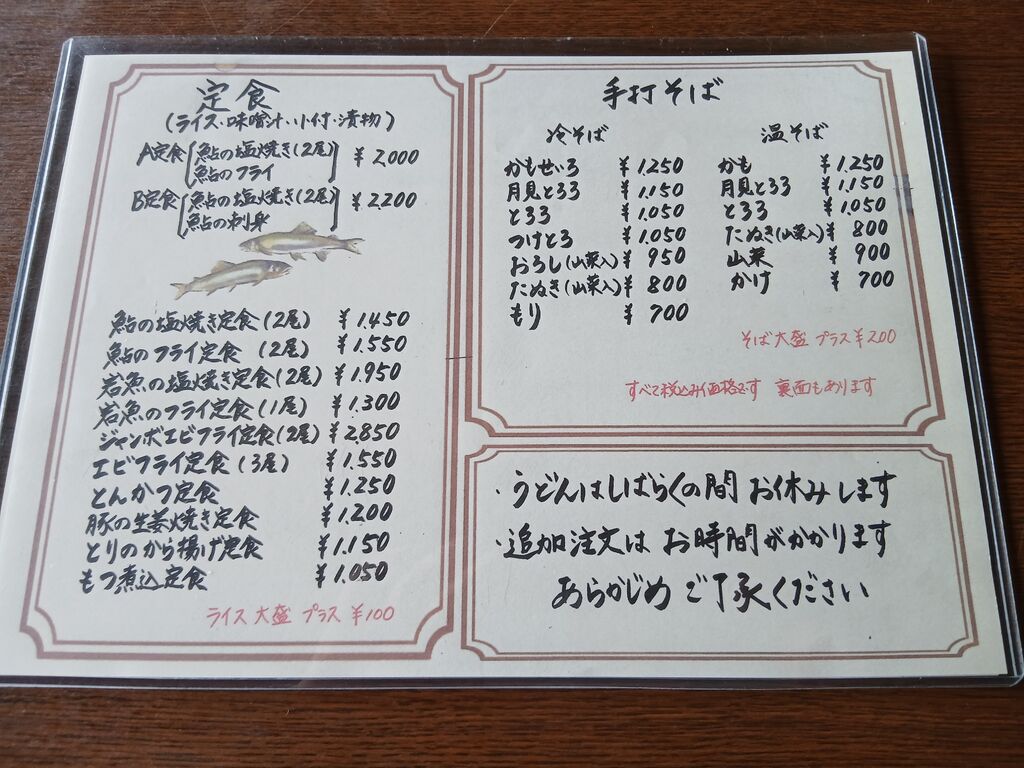 定食
(ライス・味噌汁・小付・漬物)
A定食 鮎の塩焼き(2尾) ¥2,000
鮎のフライ
B定食 鮎の塩焼き(2尾) ¥2,200
鮎の刺身
鮎の塩焼き定食(2尾) ¥1,450
鮎のフライ定食 (2尾) ¥1,550
岩魚の塩焼き定食(2尾) ¥1,950
岩魚のフライ定食(1尾) ¥1,300
ジャンボエビフライ定食(2尾) ¥2,850
エビフライ定食(3尾) ¥1,550
とんかつ定食 ¥1,250
豚の生姜焼き定食 ¥1,200
とりのから揚げ定食 ¥1,150
もつ煮込定食 ¥1,050
ライス大盛 プラス ¥100
手打そば
冷そば
かもせいろ ¥1,250
月見とろろ ¥1,150
とろろ ¥1,050
つけとろ ¥1,050
おろし(山菜入) ¥950
たぬき(山菜入) ¥800
もり ¥700
温そば
かも ¥1,250
月見とろろ ¥1,150
とろろ ¥1,050
たぬき(山菜入) ¥800
山菜 ¥900
かけ ¥700
そば大盛 プラス¥200
すべて税込み価格です 裏面もあります
・うどんはしばらくの間 お休みします
・追加注文は お時間がかかります
あらかじめ ご了承ください